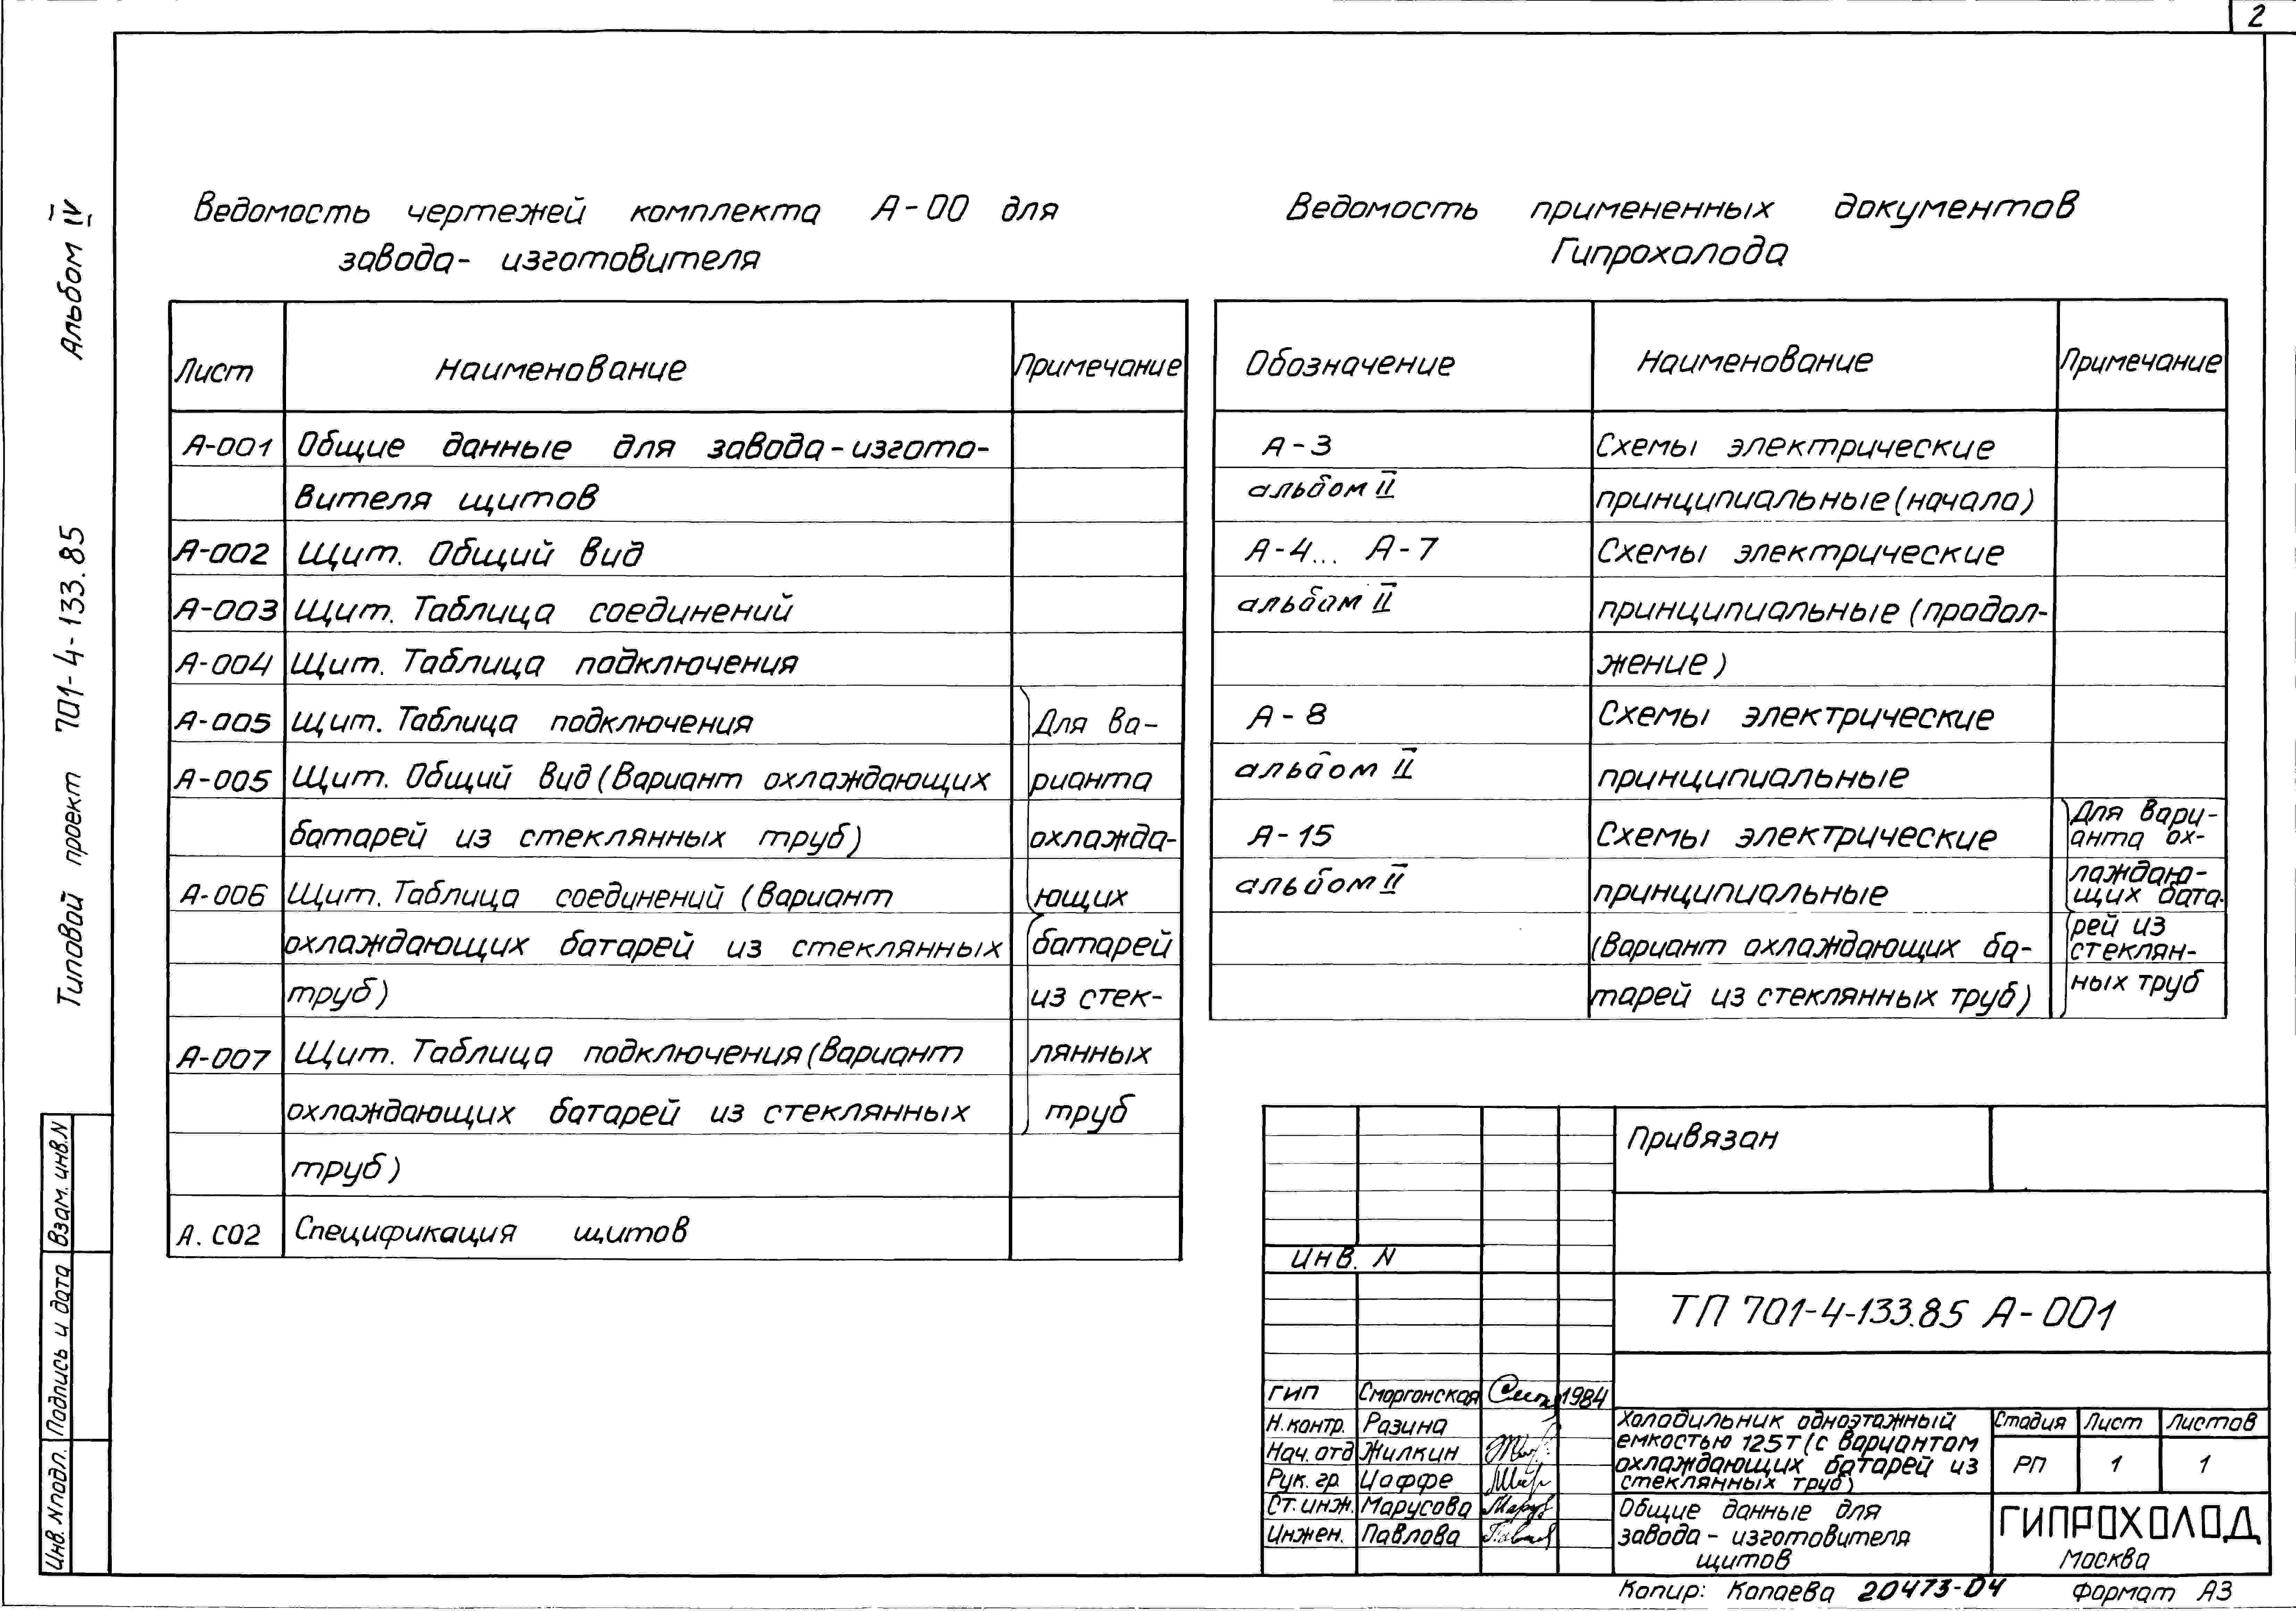 2
Альбом IV
Типовой проект 701-4-133.85
Ведомость чертежей комплекта А-00 для
завода- изготовителя
Лист Наименование Примечание
А-001 Общие данные для завода-изгото-
вителя щитов
А-002 Щит. Общий вид
А-003 Щит. Таблица соединений
А-004 Щит. Таблица подключения
А-005 Щит. Таблица подключения Для ва-
А-005 Щит. Общий вид (Вариант охлаждающих рианта
батарей из стеклянных труб) охлажда-
А-006 Щит. Таблица соединений (Вариант ющих
охлаждающих батарей из стеклянных батарей
труб) из стек-
А-007 Щит. Таблица подключения (Вариант лянных
охлаждающих батарей из стеклянных труб
труб)
А. СО2 Спецификация щитов
Ведомость примененных документов
Гипрохолода
Обозначение Наименование Примечание
А-3 Схемы электрические
альбом II принципиальные (начало)
А-4... А-7 Схемы электрические
альбом II принципиальные (продол-
жение)
А-8 Схемы электрические
альбом II принципиальные
А-15 Схемы электрические
альбом II принципиальные
(Вариант охлаждающих ба-
тарей из стеклянных труб)
Для вари-
анта ох-
лаждаю-
щих бата-
рей из
стеклян-
ных труб
Привязан
Инв. N
ТП 701-4-133.85 А-001
ГИП Сморгонская 1984
Н.контр. Разина
Нач.отд Жилкин
Рук.гр. Иаффе
Ст.инж. Марусова
Инжен. Павлова
Холодильник одноэтажный
емкостью 125т (с вариантом
охлаждающих батарей из
стеклянных труб)
Стадия Лист Листов
РП 1 1
Общие данные для
завода- изготовителя
щитов
ГИПРОХОЛОД
Москва
Копир: Копаева 20473-04 Формат А3
Взам. инв.N
Подпись и дата
Инв. N подл.